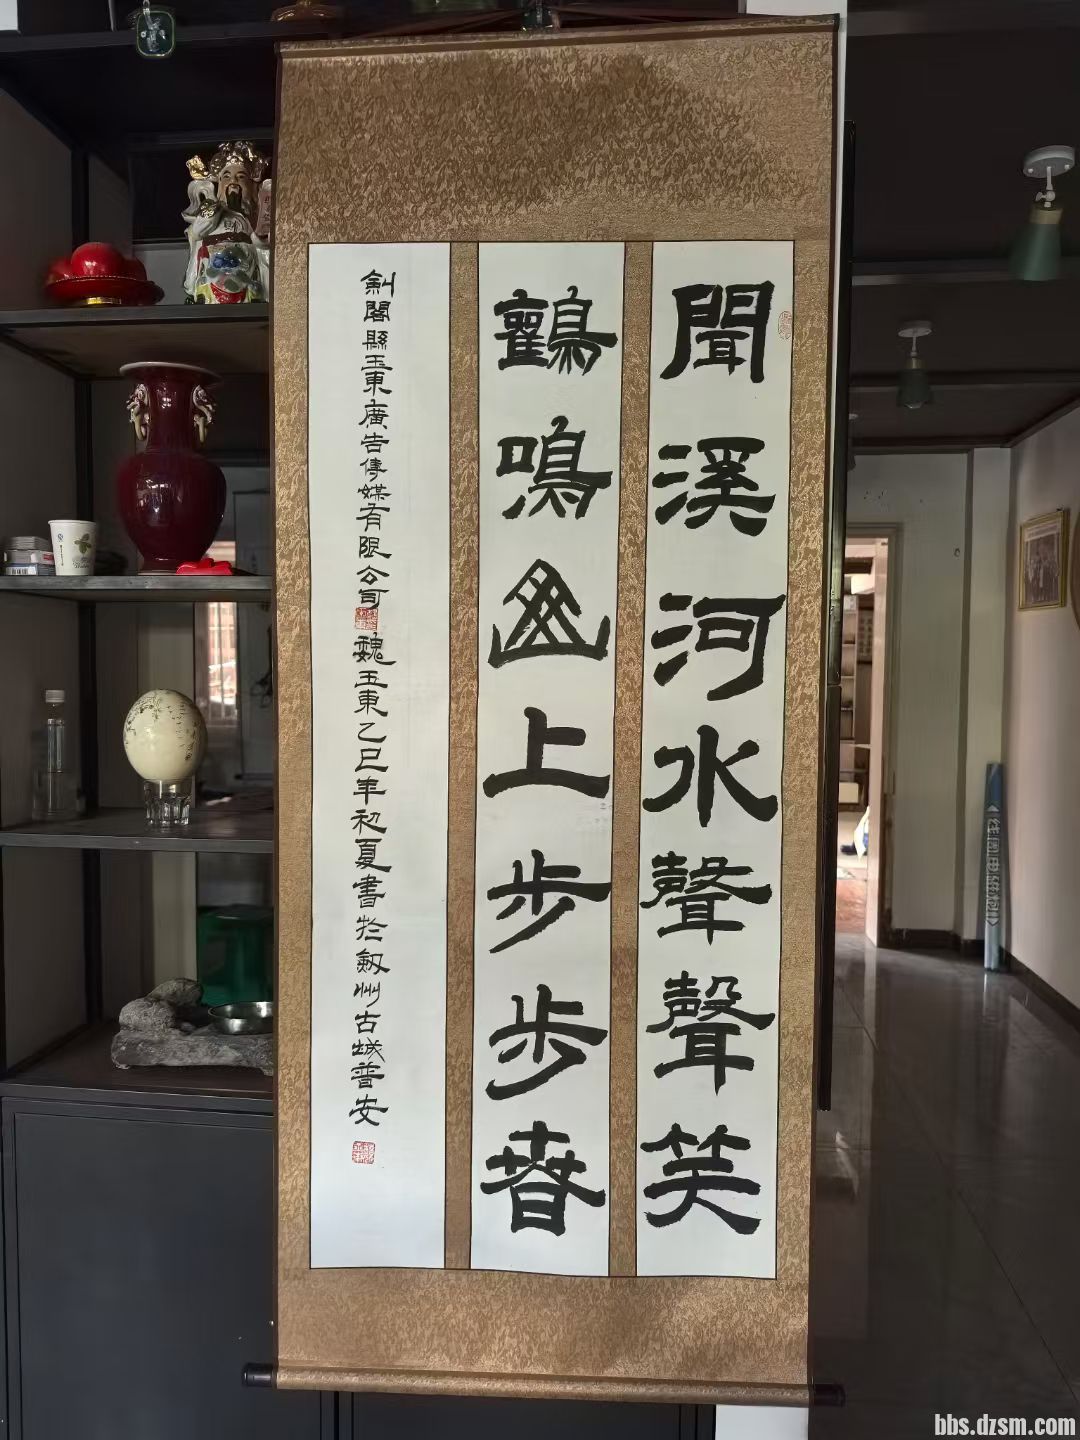 聞溪河水聲聲笑
鸛鳴山上步步春
劍閣縣玉東廣告傳媒有限公司魏玉東乙巳年初夏書於劍州古城普安
bbs.dzsm.com